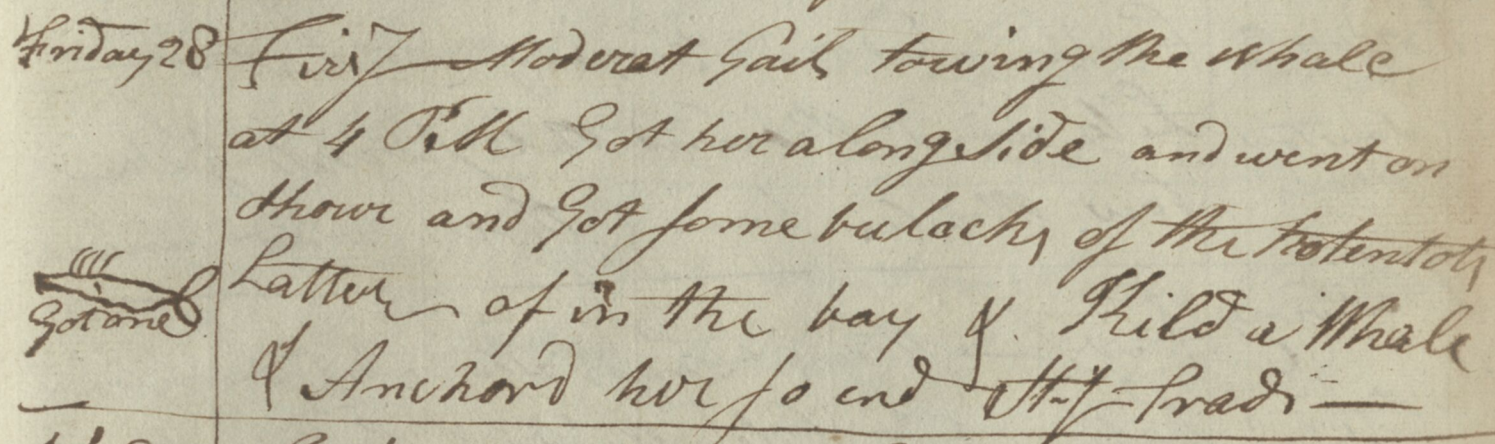 Friday 28 First Moderat Gails towing the Whale
at 4 P:M Got her along Side and went on
Shore and Got some bulachs of the hotentots
Latter of in the bay & Kild a Whale
Got one
& Anchord her so end